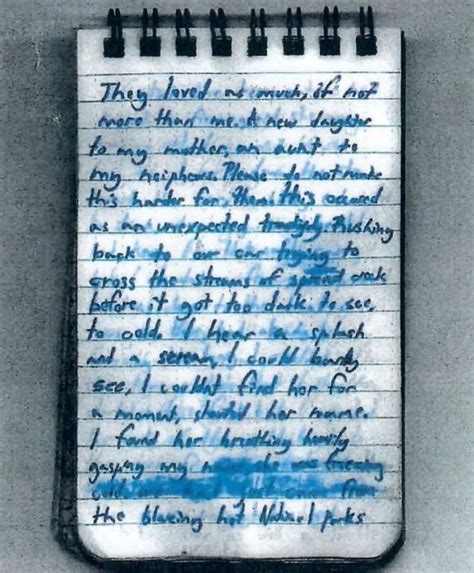 They loved as much, if not
more than me. A new daughter
to my mother, an aunt to
my neiphews. Please do not make
this harder for them, this occured
as an unexpected tradgedy. Rushing
back to our car trying to
cross the streams of spread creek
before it got too dark to see,
to cold. I hear a splash
and a scream, I could barely
see, I couldnt find her for
a moment, shouted her name.
I found her breathing heavily
gasping my name, she was freezing
cold. from
the blazing hot National parks